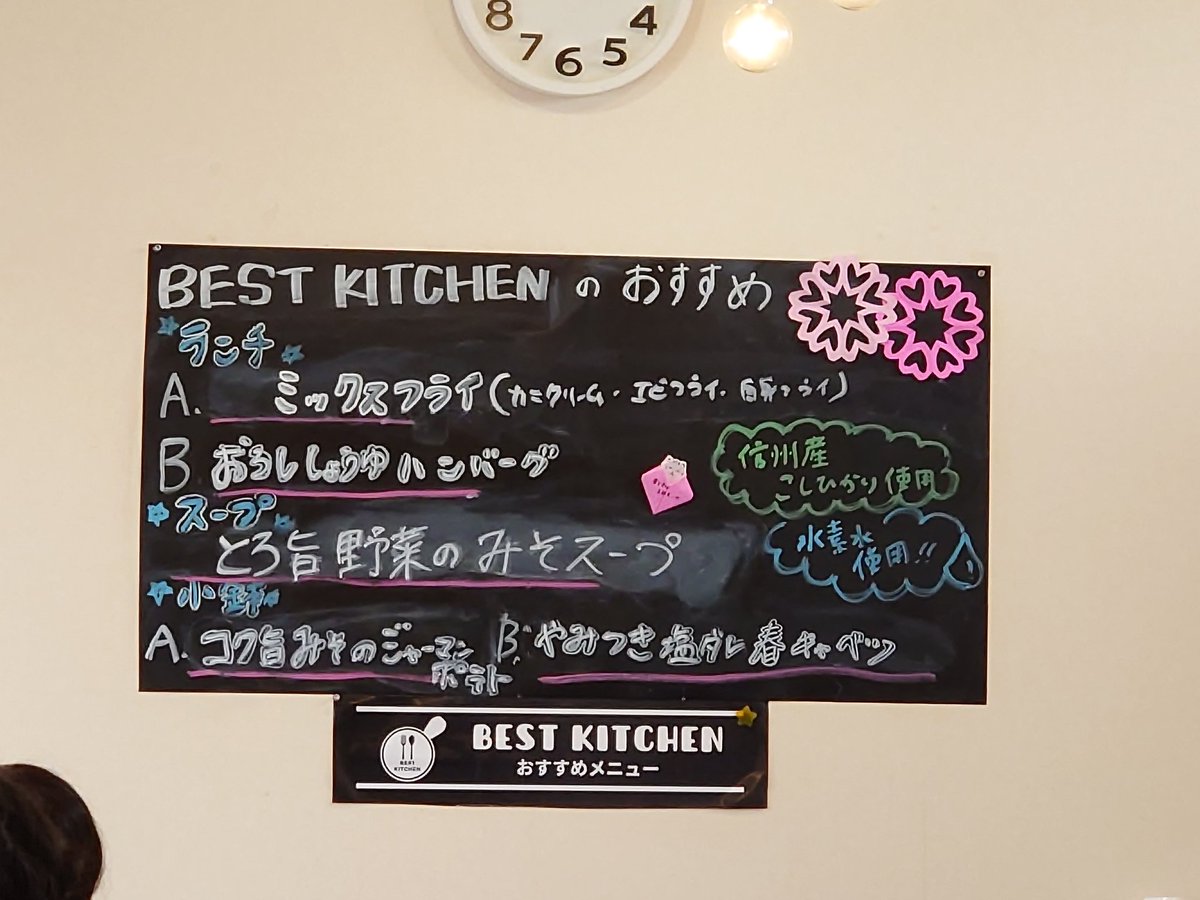 8 7 6 5 4
BEST KITCHEN の おすすめ
ランチ
A. ミックスフライ(カニクリーム・エビフライ・白身フライ)
B おろししょうゆハンバーグ
信州産
こしひかり使用
スープ
とろ旨野菜のみそスープ
水素水
使用!!
小鉢
A. コク旨みそのジャーマン
ポテト
B. やみつき塩ダレ春キャベツ
BEST
KITCHEN
BEST KITCHEN
おすすめメニュー